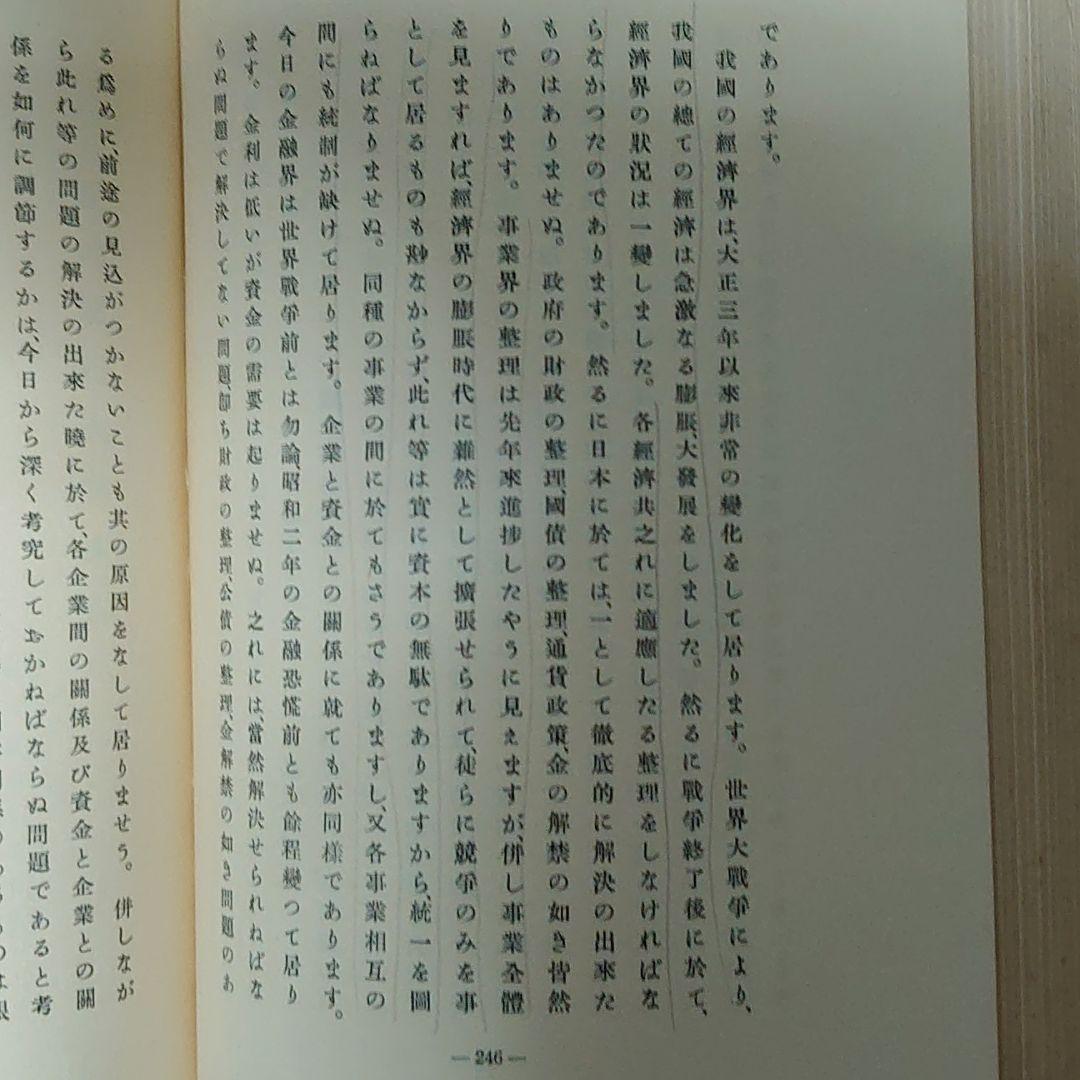 であります。
我國の經濟界は、大正三年以來非常の變化をして居ります。世界大戰爭により、
我國の總ての經濟は急激なる膨脹、大發展をしました。然るに戰爭終了後に於て、
經濟界の狀況は一變しました。各經濟共之れに適應したる整理をしなければな
らなかつたのであります。然るに日本に於ては、一として徹底的に解決の出來た
ものはありませぬ。政府の財政の整理、國債の整理、通貨政策、金の解禁の如き皆然
りであります。事業界の整理は先年來進捗したやうに見えますが、併し事業全體
を見ますれば、經濟界の膨脹時代に雜然として擴張せられて、徒らに競爭のみを事
として居るものも尠なからず、此れ等は實に資本の無駄でありますから、統一を圖
らねばなりませぬ。同種の事業の間に於てもさうでありますし、又各事業相互の
間にも統制が缺けて居ります。企業と資金との關係に就ても亦同樣であります。
今日の金融界は世界戰爭前とは勿論、昭和二年の金融恐慌前とも餘程變つて居り
ます。金利は低いが資金の需要は起りませぬ。之れには、當然解決せられねばな
らぬ問題で解決してない問題、卽ち財政の整理、公債の整理、金解禁の如き問題のあ
— 246 —
る爲めに、前途の見込がつかないことも其の原因をなして居りませう。併しなが
ら此れ等の問題の解決の出來た曉に於て、各企業間の關係及び資金と企業との關
係を如何に調節するかは、今日から深く考究しておかねばならぬ問題であると考